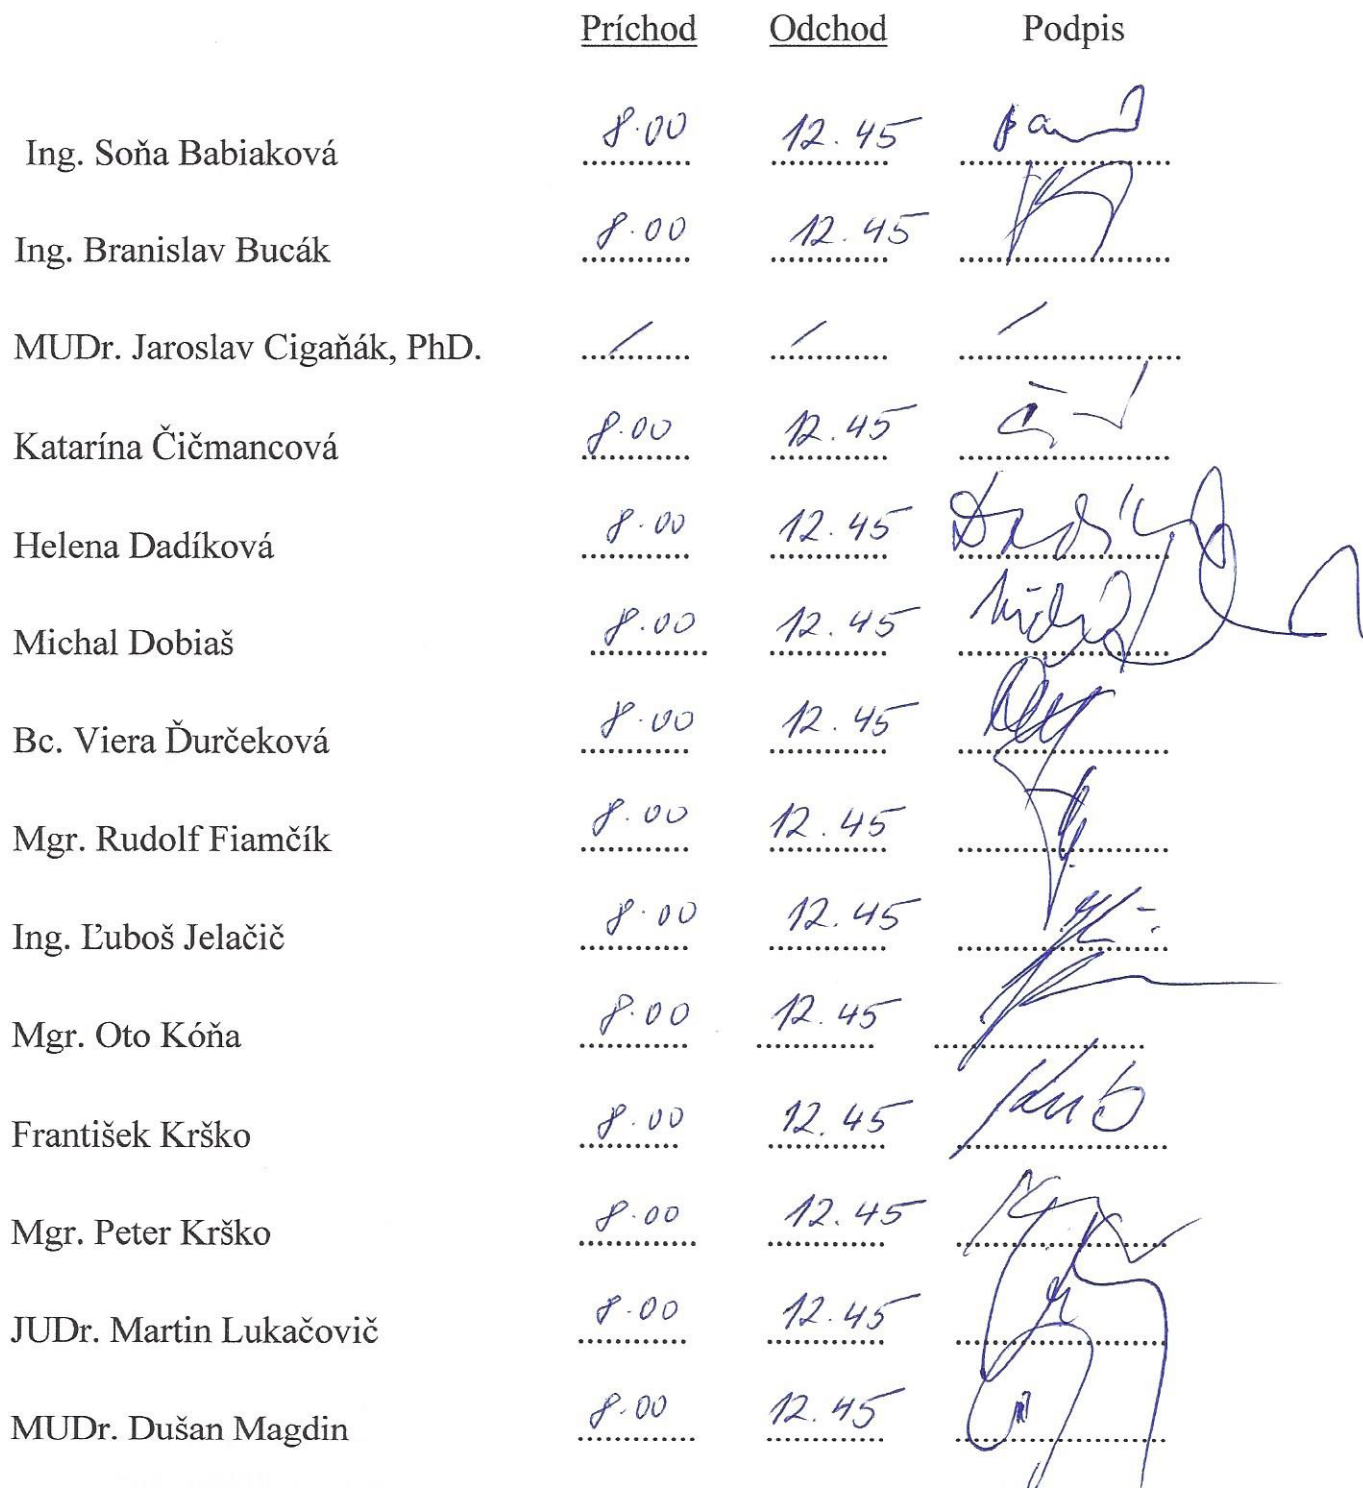 Príchod Odchod Podpis
Ing. Soňa Babiaková 8.00 12.45
Ing. Branislav Bucák 8.00 12.45
MUDr. Jaroslav Cigaňák, PhD. / / /
Katarína Čičmancová 8.00 12.45
Helena Dadíková 8.00 12.45
Michal Dobiaš 8.00 12.45
Bc. Viera Ďurčeková 8.00 12.45
Mgr. Rudolf Fiamčík 8.00 12.45
Ing. Ľuboš Jelačič 8.00 12.45
Mgr. Oto Kóňa 8.00 12.45
František Krško 8.00 12.45
Mgr. Peter Krško 8.00 12.45
JUDr. Martin Lukačovič 8.00 12.45
MUDr. Dušan Magdin 8.00 12.45